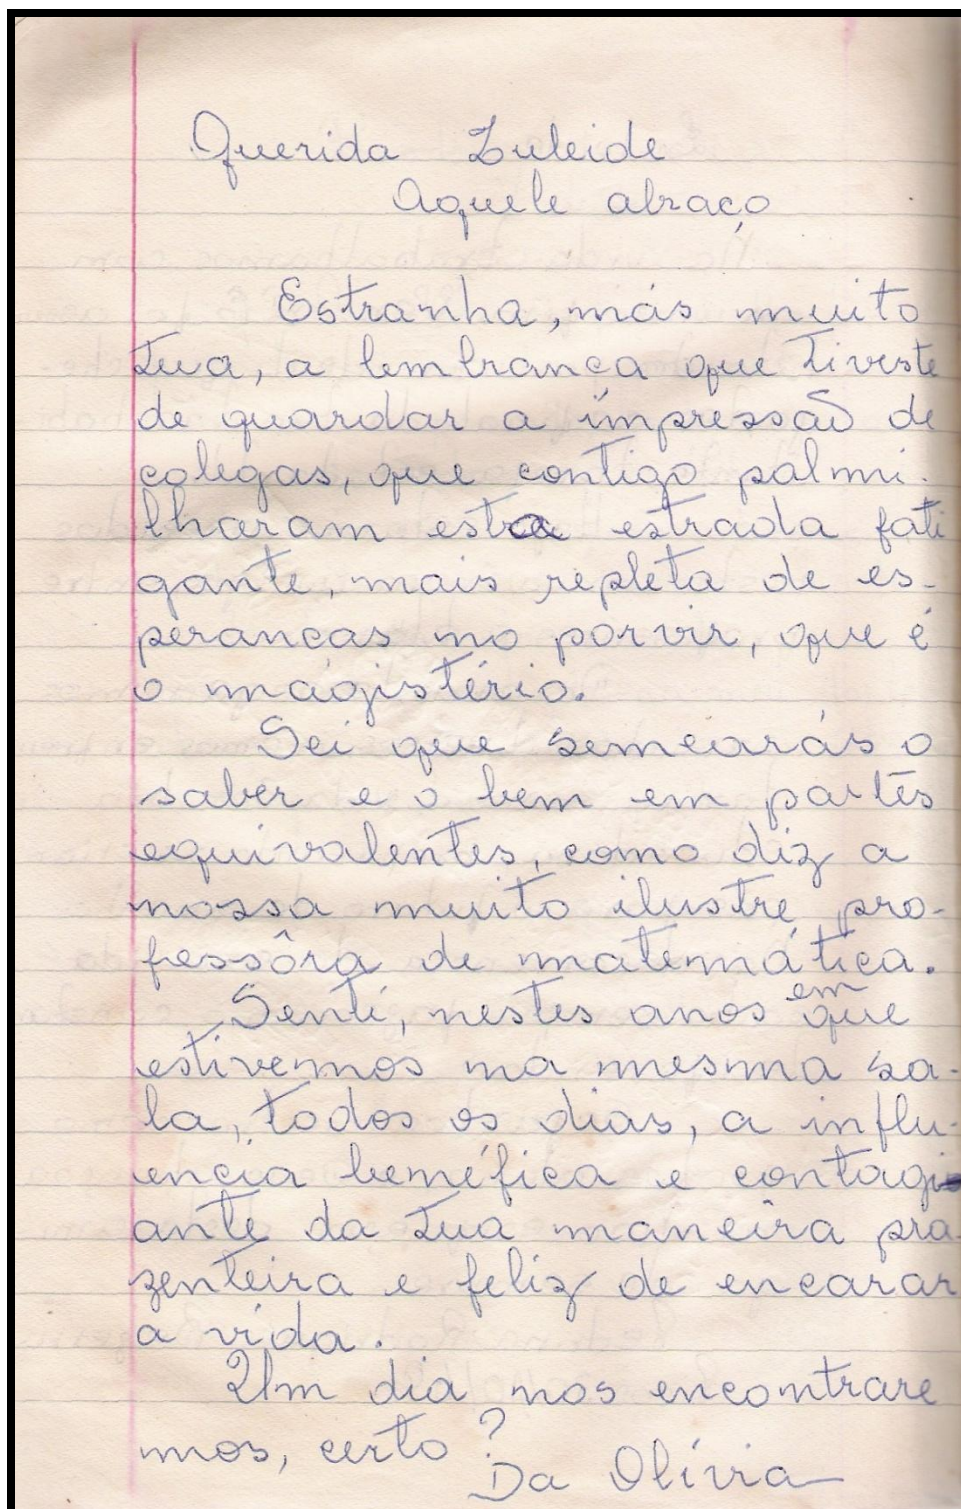 Querida Zuleide
Aquele abraço
Estranha, mas muito
tua, a lembrança que tiveste
de guardar a impressão de
colegas, que contigo palmi-
lharam esta estrada fati
gante, mais repleta de es-
peranças no porvir, que é
o magistério.
Sei que semearás o
saber e o bem em partes
equivalentes, como diz a
nossa muito ilustre pro-
fessôra de matemática.
Senti, nestes anos em que
estivemos na mesma sa-
la, todos os dias, a influ-
encia benéfica e contagi
ante da tua maneira pra-
zenteira e feliz de encarar
a vida.
Um dia nos encontrare
mos, certo?
Da Olívia